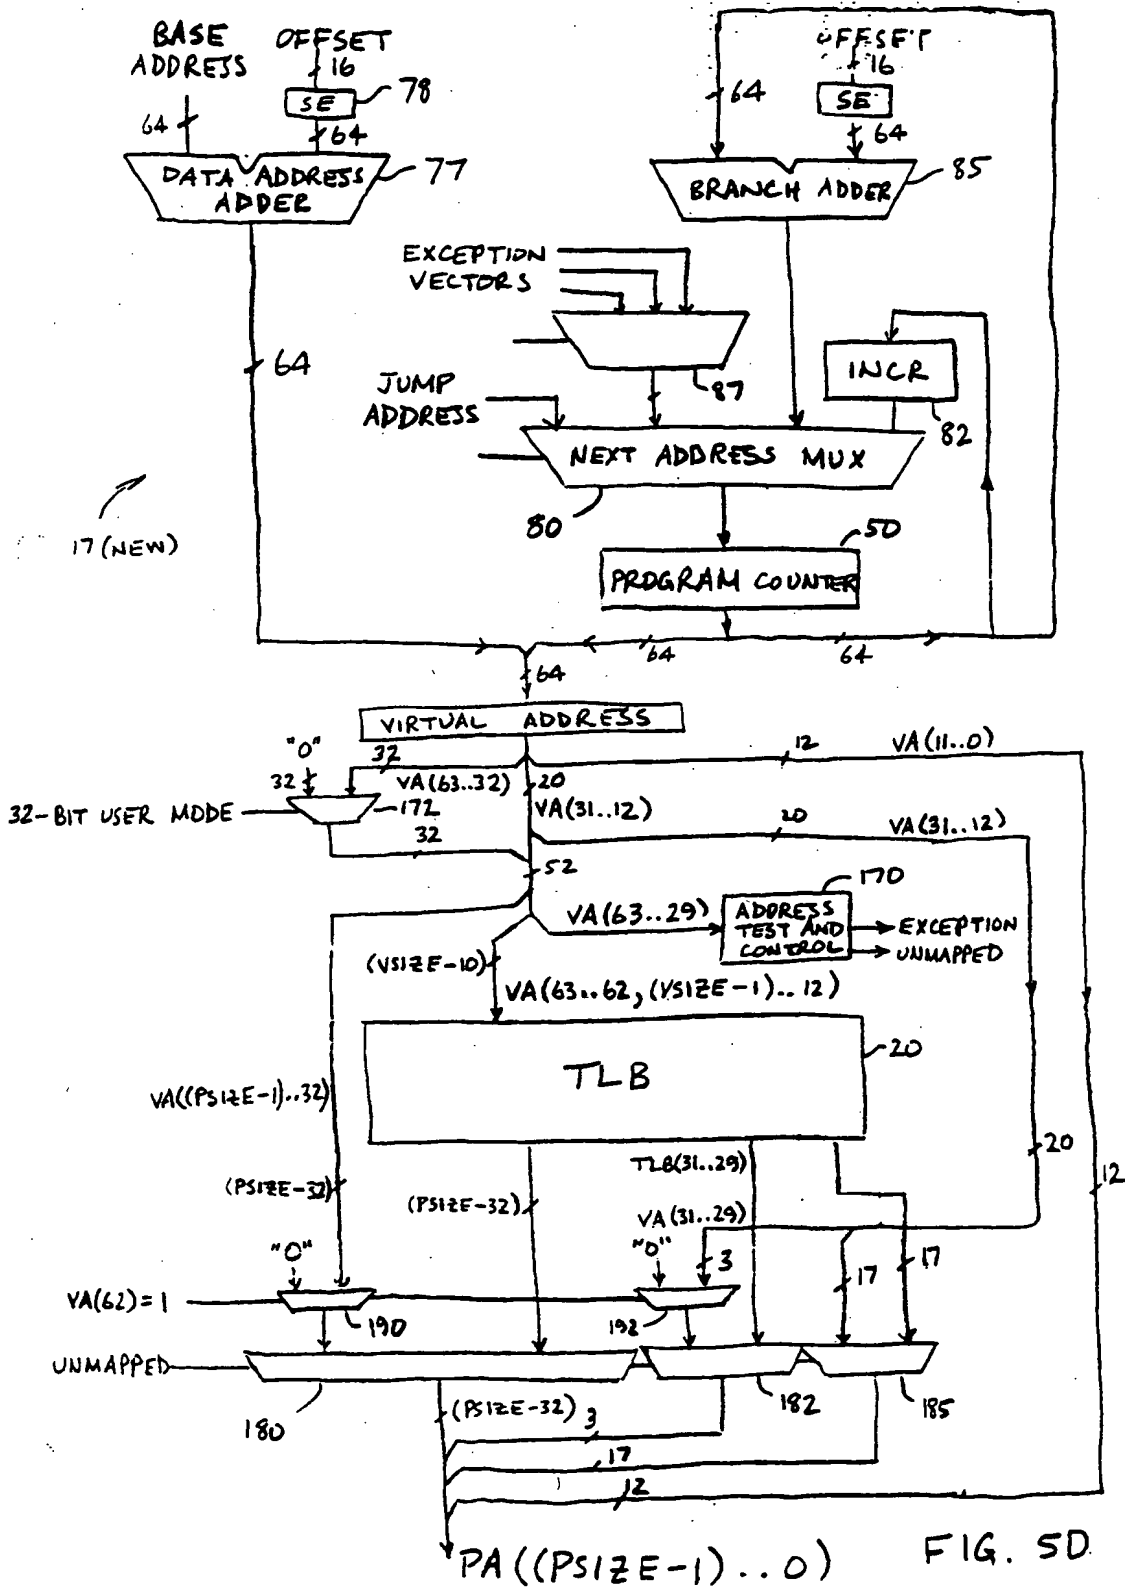 BASE
ADDRESS
OFFSET
16
SE
78
64
64
DATA ADDRESS
ADDER
77
OFFSET
16
64
SE
64
BRANCH ADDER
85
EXCEPTION
VECTORS
64
JUMP
ADDRESS
87
INCR
82
NEXT ADDRESS MUX
80
50
17 (NEW)
PROGRAM COUNTER
64
64
64
VIRTUAL ADDRESS
"0"
32
32
VA(63..32)
20
12
VA(11..0)
32-BIT USER MODE
172
VA(31..12)
20
VA(31..12)
32
52
170
VA(63..29)
ADDRESS
TEST AND
CONTROL
EXCEPTION
UNMAPPED
(VSIZE-10)
VA(63..62, (VSIZE-1)..12)
TLB
20
VA((PSIZE-1)..32)
20
12
TLB(31..29)
(PSIZE-32)
(PSIZE-32)
VA(31..29)
"0"
"0"
3
17
17
VA(62)=1
190
192
UNMAPPED
180
182
185
(PSIZE-32)
3
17
12
PA((PSIZE-1)..0)
FIG. 5D